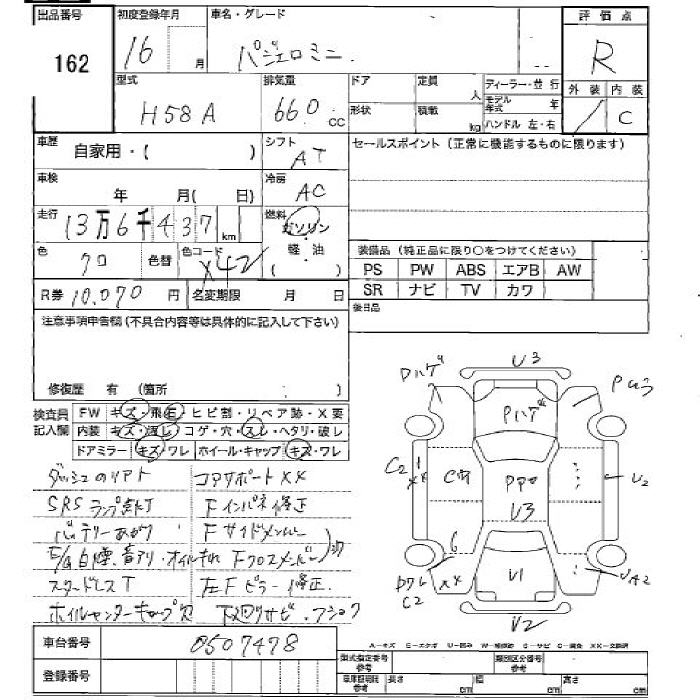 出品番号 初度登録年月 車名・グレード 評価点
162 16 月 パジェロミニ R
型式 排気量 ドア 定員 人 ディーラー・並行 外装 内装
H58A 660 cc 形状 積載 kg モデル年式 年 ハンドル 左・右 C
車歴 自家用・( ) シフト AT セールスポイント (正常に機能するものに限ります)
車検 年 月( 日) 冷房 AC
走行 13万6千437 km 燃料 ガソリン
色 クロ 色替 色コード X42 軽・油 ( )
装備品 (純正品に限り○をつけてください)
PS PW ABS エアB AW
SR ナビ TV カワ
R券 10,070 円 名変期限 月 日 後日品
注意事項申告欄 (不具合内容等は具体的に記入して下さい)
修復歴 有 (箇所 )
検査員記入欄 FW キズ・飛石・ヒビ割・リペア跡・X要
内装 キズ・汚レ・コゲ・穴・スレ・ヘタリ・破レ
ドアミラー キズ・ワレ ホイール・キャップ キズ・ワレ
コアサポートXX
SRSランプ点灯 Fインパネ修正
バッテリーあがり Fサイドメンバー
E/G白煙、音アリ・オイルもれ Fクロスメンバー
スタッドレスT 左Fピラー修正
ホイルセンターキャップ欠 下回りサビ・フショク
U3
Pハゲ
C2
XX
U2
U3
XX
C2
U1
UA2
U2
A-キズ E-エクボ U-凹み W-補修跡 C-サビ
車台番号 0507478
登録番号
型式指定番号 参考 類別区分番号 参考
車庫証明用 参考 長さ cm 幅 cm 高さ cm